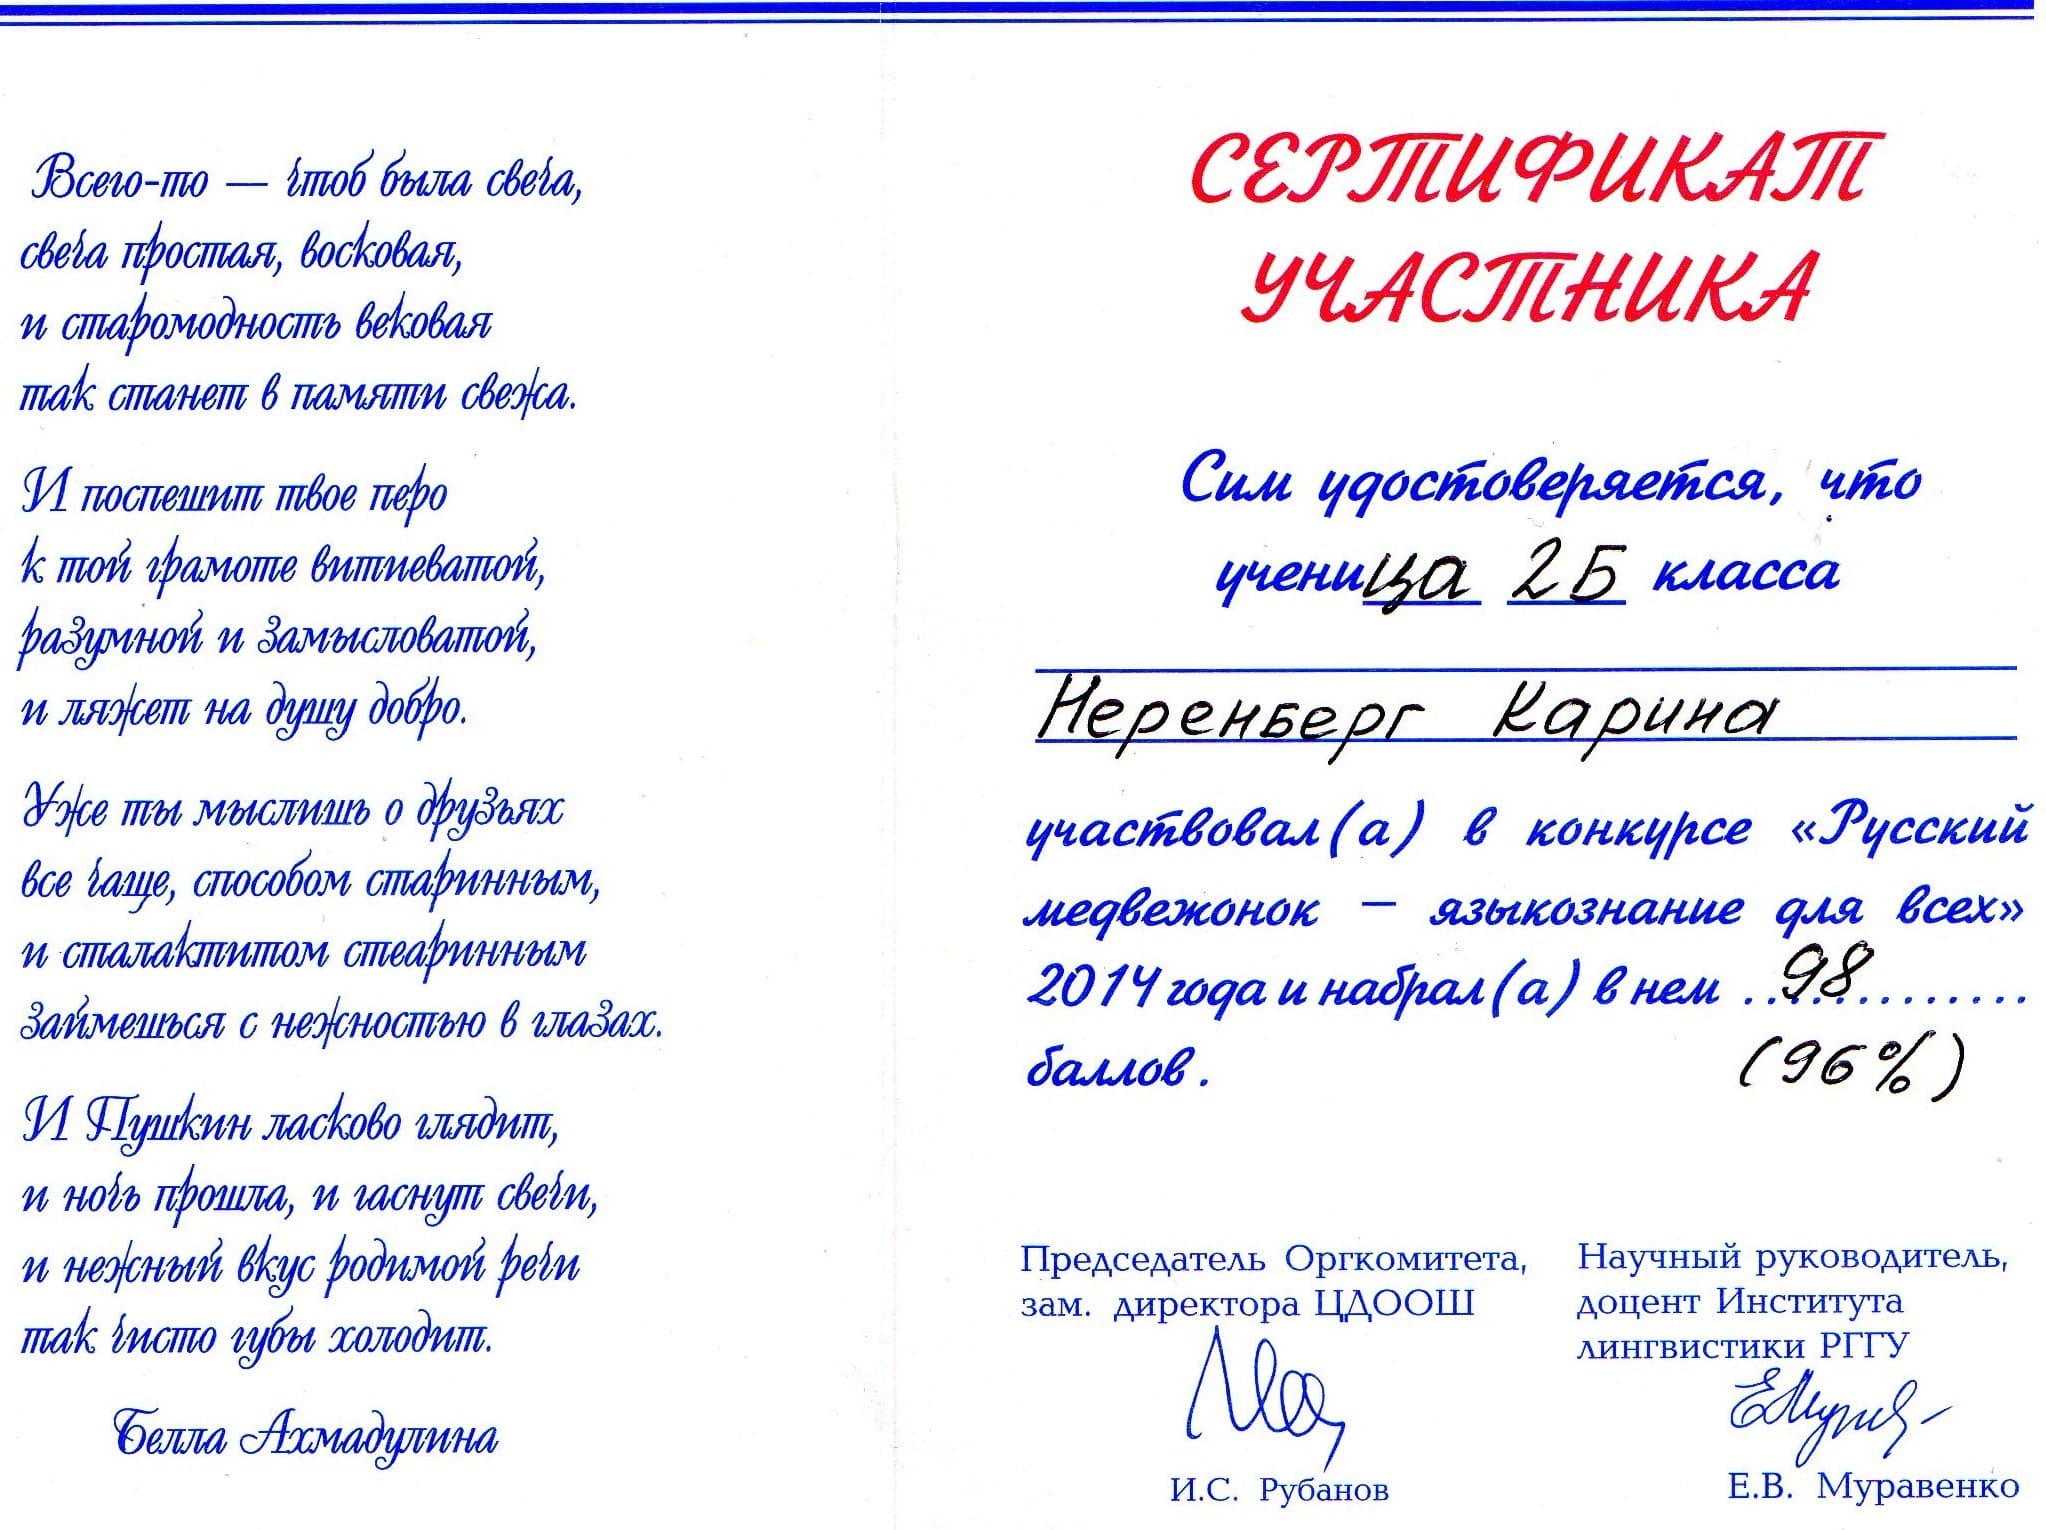 Всего-то — чтоб была свеча,
свеча простая, восковая,
и старомодность вековая
так станет в памяти свежа.
И поспешит твое перо
к той грамоте витиеватой,
разумной и замысловатой,
и ляжет на душу добро.
Уже ты мыслишь о друзьях
все чаще, способом старинным,
и сталактитом стеаринным
займешься с нежностью в глазах.
И Пушкин ласково глядит,
и ночь прошла, и гаснут свечи,
и нежный вкус родимой речи
так чисто губы холодит.
Белла Ахмадулина
СЕРТИФИКАТ
УЧАСТНИКА
Сим удостоверяется, что
ученица 2Б класса
Неренберг Карина
участвовал(а) в конкурсе «Русский
медвежонок — языкознание для всех»
2014 года и набрал(а) в нем ..98..........
баллов. (96%)
Председатель Оргкомитета,
зам. директора ЦДООШ
И.С. Рубанов
Научный руководитель,
доцент Института
лингвистики РГГУ
Е.В. Муравенко